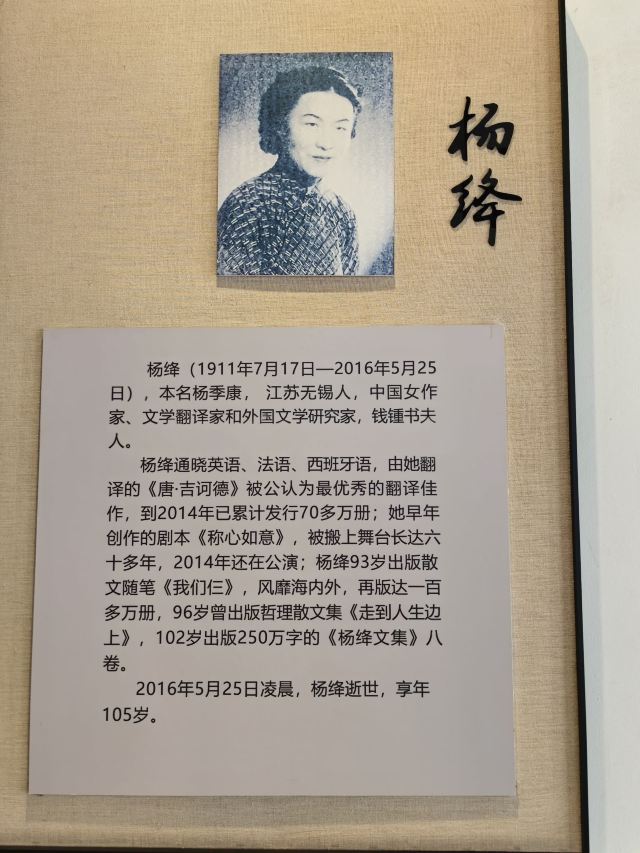 杨绛
杨绛（1911年7月17日—2016年5月25
日），本名杨季康， 江苏无锡人，中国女作
家、文学翻译家和外国文学研究家，钱锺书夫
人。
杨绛通晓英语、法语、西班牙语，由她翻
译的《唐·吉诃德》被公认为最优秀的翻译佳
作，到2014年已累计发行70多万册；她早年
创作的剧本《称心如意》，被搬上舞台长达六
十多年，2014年还在公演；杨绛93岁出版散
文随笔《我们仨》，风靡海内外，再版达一百
多万册，96岁曾出版哲理散文集《走到人生边
上》，102岁出版250万字的《杨绛文集》八
卷。
2016年5月25日凌晨，杨绛逝世，享年
105岁。